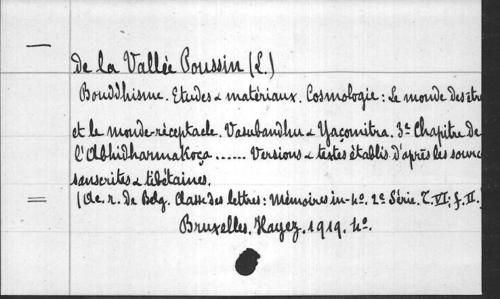 de la Vallée Poussin (L.)
Bouddhisme. Etudes & matériaux. Cosmologie: Le monde des êtr
et le monde-réceptacle. Vasubandhu & Yaçomitra. 3e Chapitre de
l'Abhidharmakoça ...... Versions & textes établis d'après les sourc
sanscrites & tibétaines.
(Ac. r. de Belg. Classe des lettres: Mémoires in-4o. 2e Série. T. VI; f. II.)
Bruxelles. Hayez. 1919. 4o.